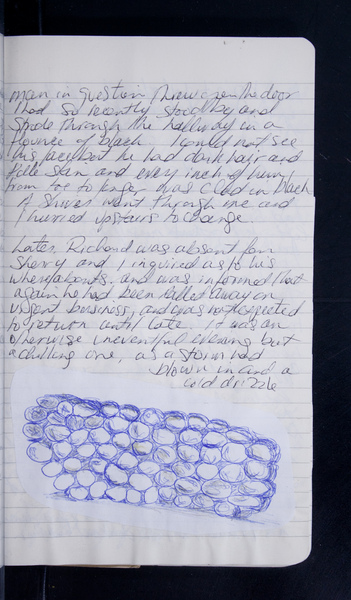 man in question threw open the door
I had so recently stood by and
strode through the hallway in a
flounce of black. I could not see
his face but he had dark hair and
pale skin and every inch of him
from toe to finger was clad in black
A shiver went through me and
I hurried upstairs to change.
Later, Richard was absent for
Sherry and I inquired as to his
whereabouts. and was informed that
again he had been called away on
urgent business, and was not expected
to return until late. It was an
otherwise uneventful evening but
a chilling one, as a storm had
blown in and a
cold drizzle